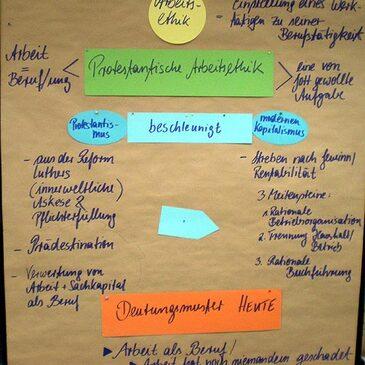 Arbeits-
ethik
Einstellung eines Werk-
tätigen zu seiner
Berufstätigkeit
Arbeit
=
Beruf/ung
Protestantische Arbeitsethik
eine von
Gott gewollte
Aufgabe
Protestantis-
mus
beschleunigt
modernen
Kapitalismus
- aus der Reform
Luthers
(innerweltliche)
Askese &
Pflichterfüllung
- Prädestination
- Verwertung von
Arbeit + Sachkapital
als Beruf
- Streben nach Gewinn/
Rentabilität
3 Meilensteine:
1. Rationale
Betriebsorganisation
2. Trennung Haushalt/
Betrieb
3. Rationale
Buchführung
Deutungsmuster HEUTE
▶ Arbeit als Beruf/
▶ Arbeit hat noch niemandem geschadet